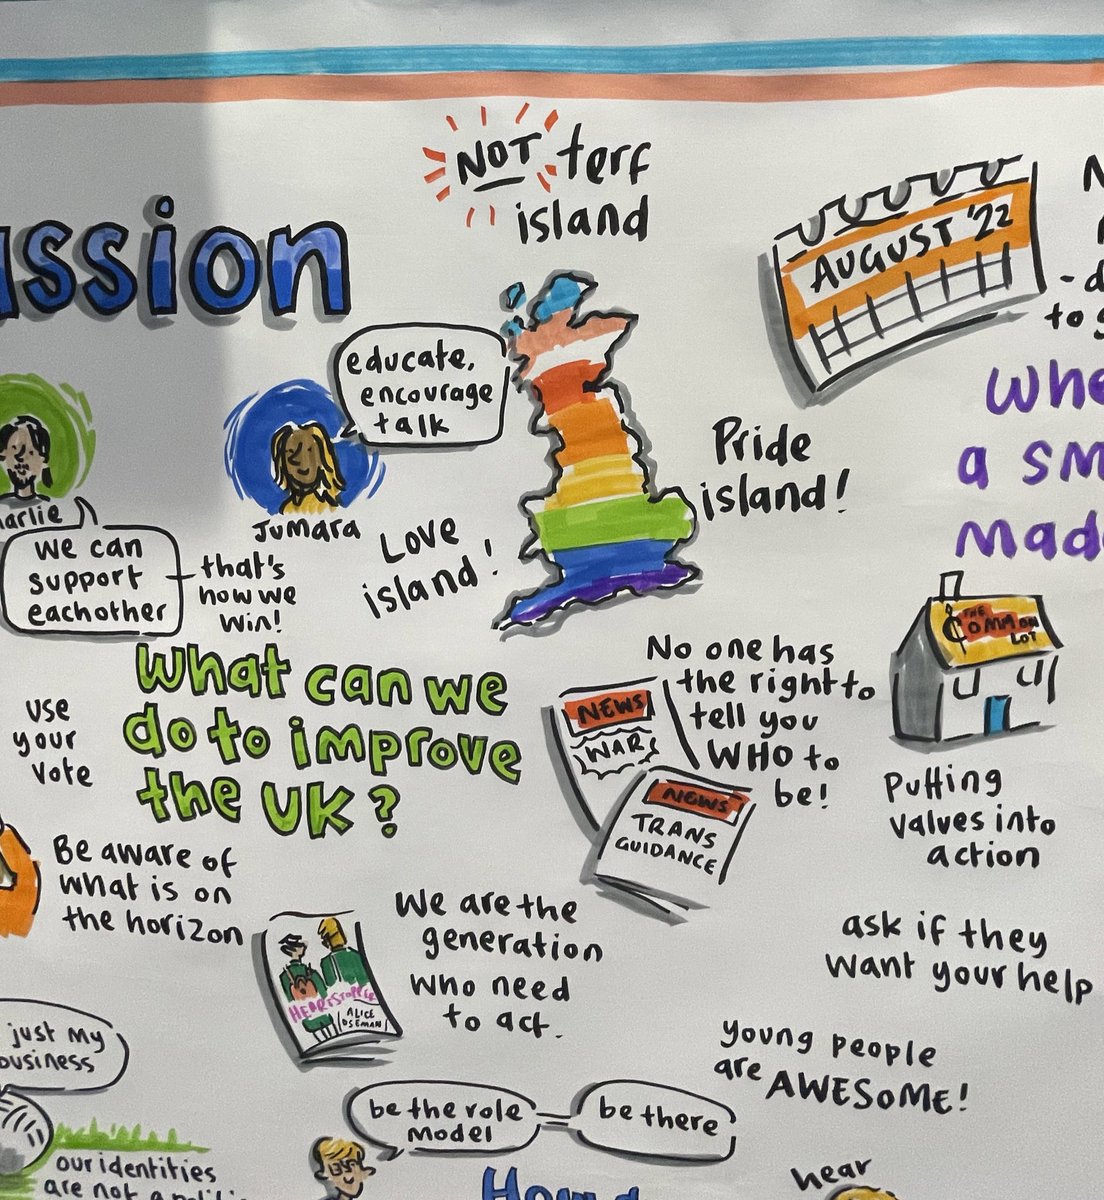 NOT terf
island
AUGUST '22
ussion
educate,
encourage
talk
Jumara
Love
island!
Pride
island!
a
we can
support
eachother
that's
how we
win!
What can we
do to improve
the UK?
use
your
vote
No one has
the right to
tell you
WHO to
be!
NEWS
WAR
NEWS
TRANS
GUIDANCE
THE
COMMON
LOT
Putting
values into
action
Be aware of
what is on
the horizon
We are the
generation
who need
to act.
HEARTSTOPPER
ALICE
OSEMAN
ask if they
want your help
young people
are AWESOME!
just my
business
be the role
model
be there
our identities
are not a
hear